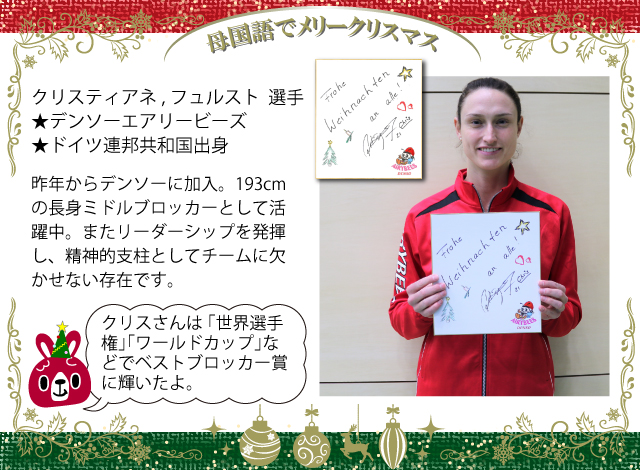 母国語でメリークリスマス
クリスティアネ , フュルスト 選手
★デンソーエアリービーズ
★ドイツ連邦共和国出身
昨年からデンソーに加入。193cm
の長身ミドルブロッカーとして活
躍中。またリーダーシップを発揮
し、精神的支柱としてチームに欠
かせない存在です。
クリスさんは「世界選手
権」「ワールドカップ」な
どでベストブロッカー賞
に輝いたよ。
Frohe
Weihnachten
an alle!
21
AIRYBEES
DENSO
Frohe
Weihnachten
an alle!
21
AIRYBEES
DENSO